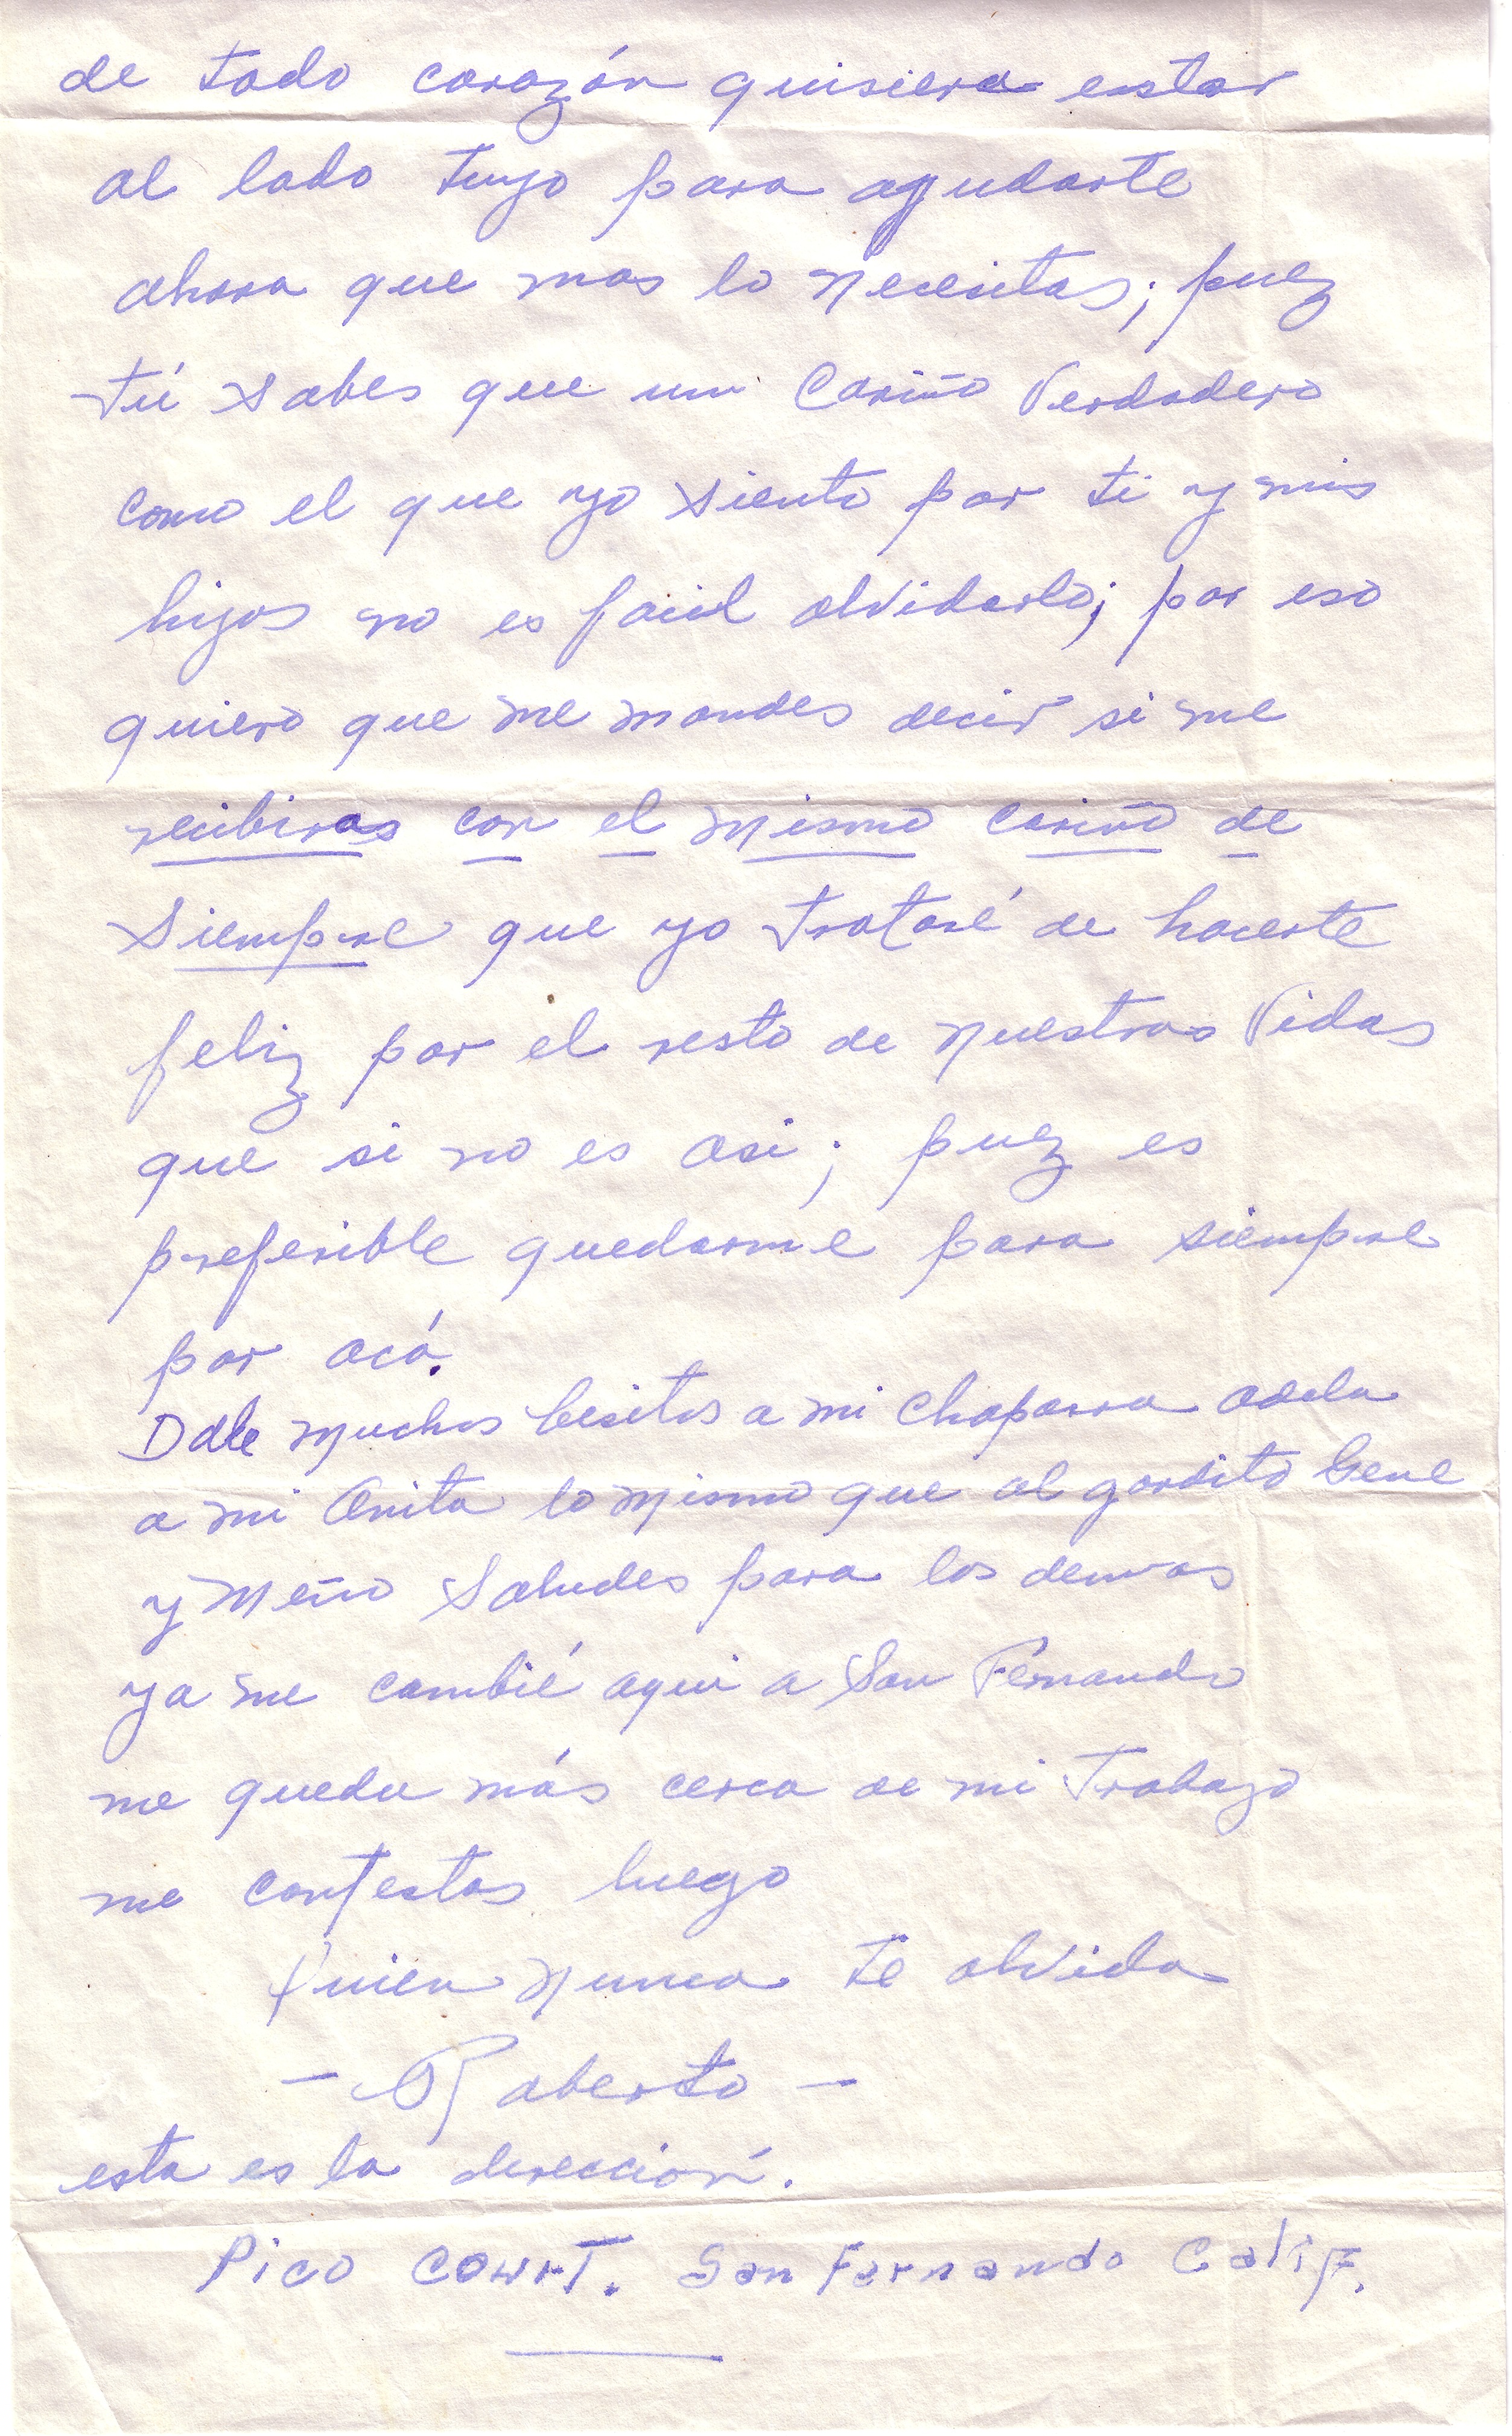 de todo corazón quisiera estar
al lado tuyo para ayudarte
ahora que mas lo necesitas; puez
tú sabes que un Cariño Verdadero
como el que yo siento por ti y mis
hijos no es facil olvidarlo; por eso
quiero que me mandes decir si me
recibiras con el mismo cariño de
Siempre que yo trataré de hacerte
feliz por el resto de nuestras Vidas
que si no es asi; puez es
preferible quedarme para siempre
por acá.
Dale muchos besitos a mi chaparra adela
a mi Anita lo mismo que al gordito Gene
y Meño Saludes para los demas
ya me cambié aqui a San Fernando
me queda más cerca de mi Trabajo
me contestas luego
Quien nunca te olvida
- Roberto -
esta es la dirección.
Pico Court. San Fernando Calif.